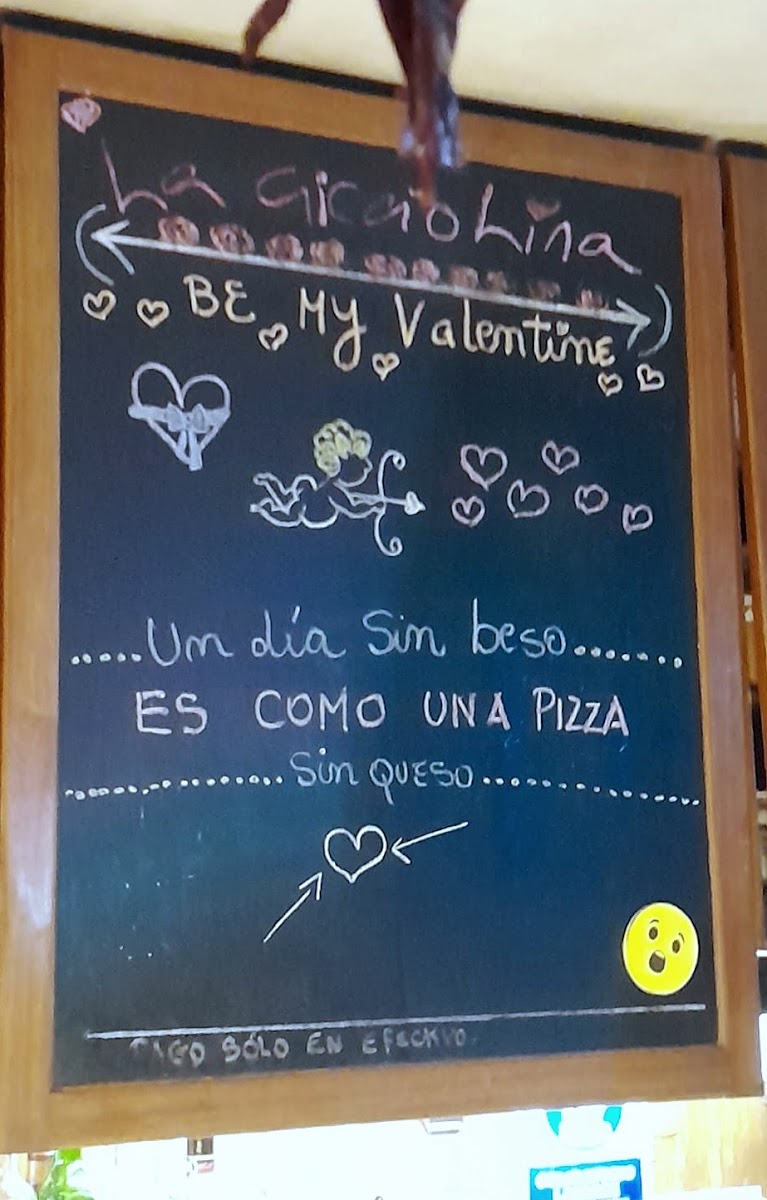 La CiCciOLina
BE MY Valentine
Un día Sin beso
ES COMO UNA PIZZA
Sin QUESO
PAGO SÓLO EN EFECTIVO.